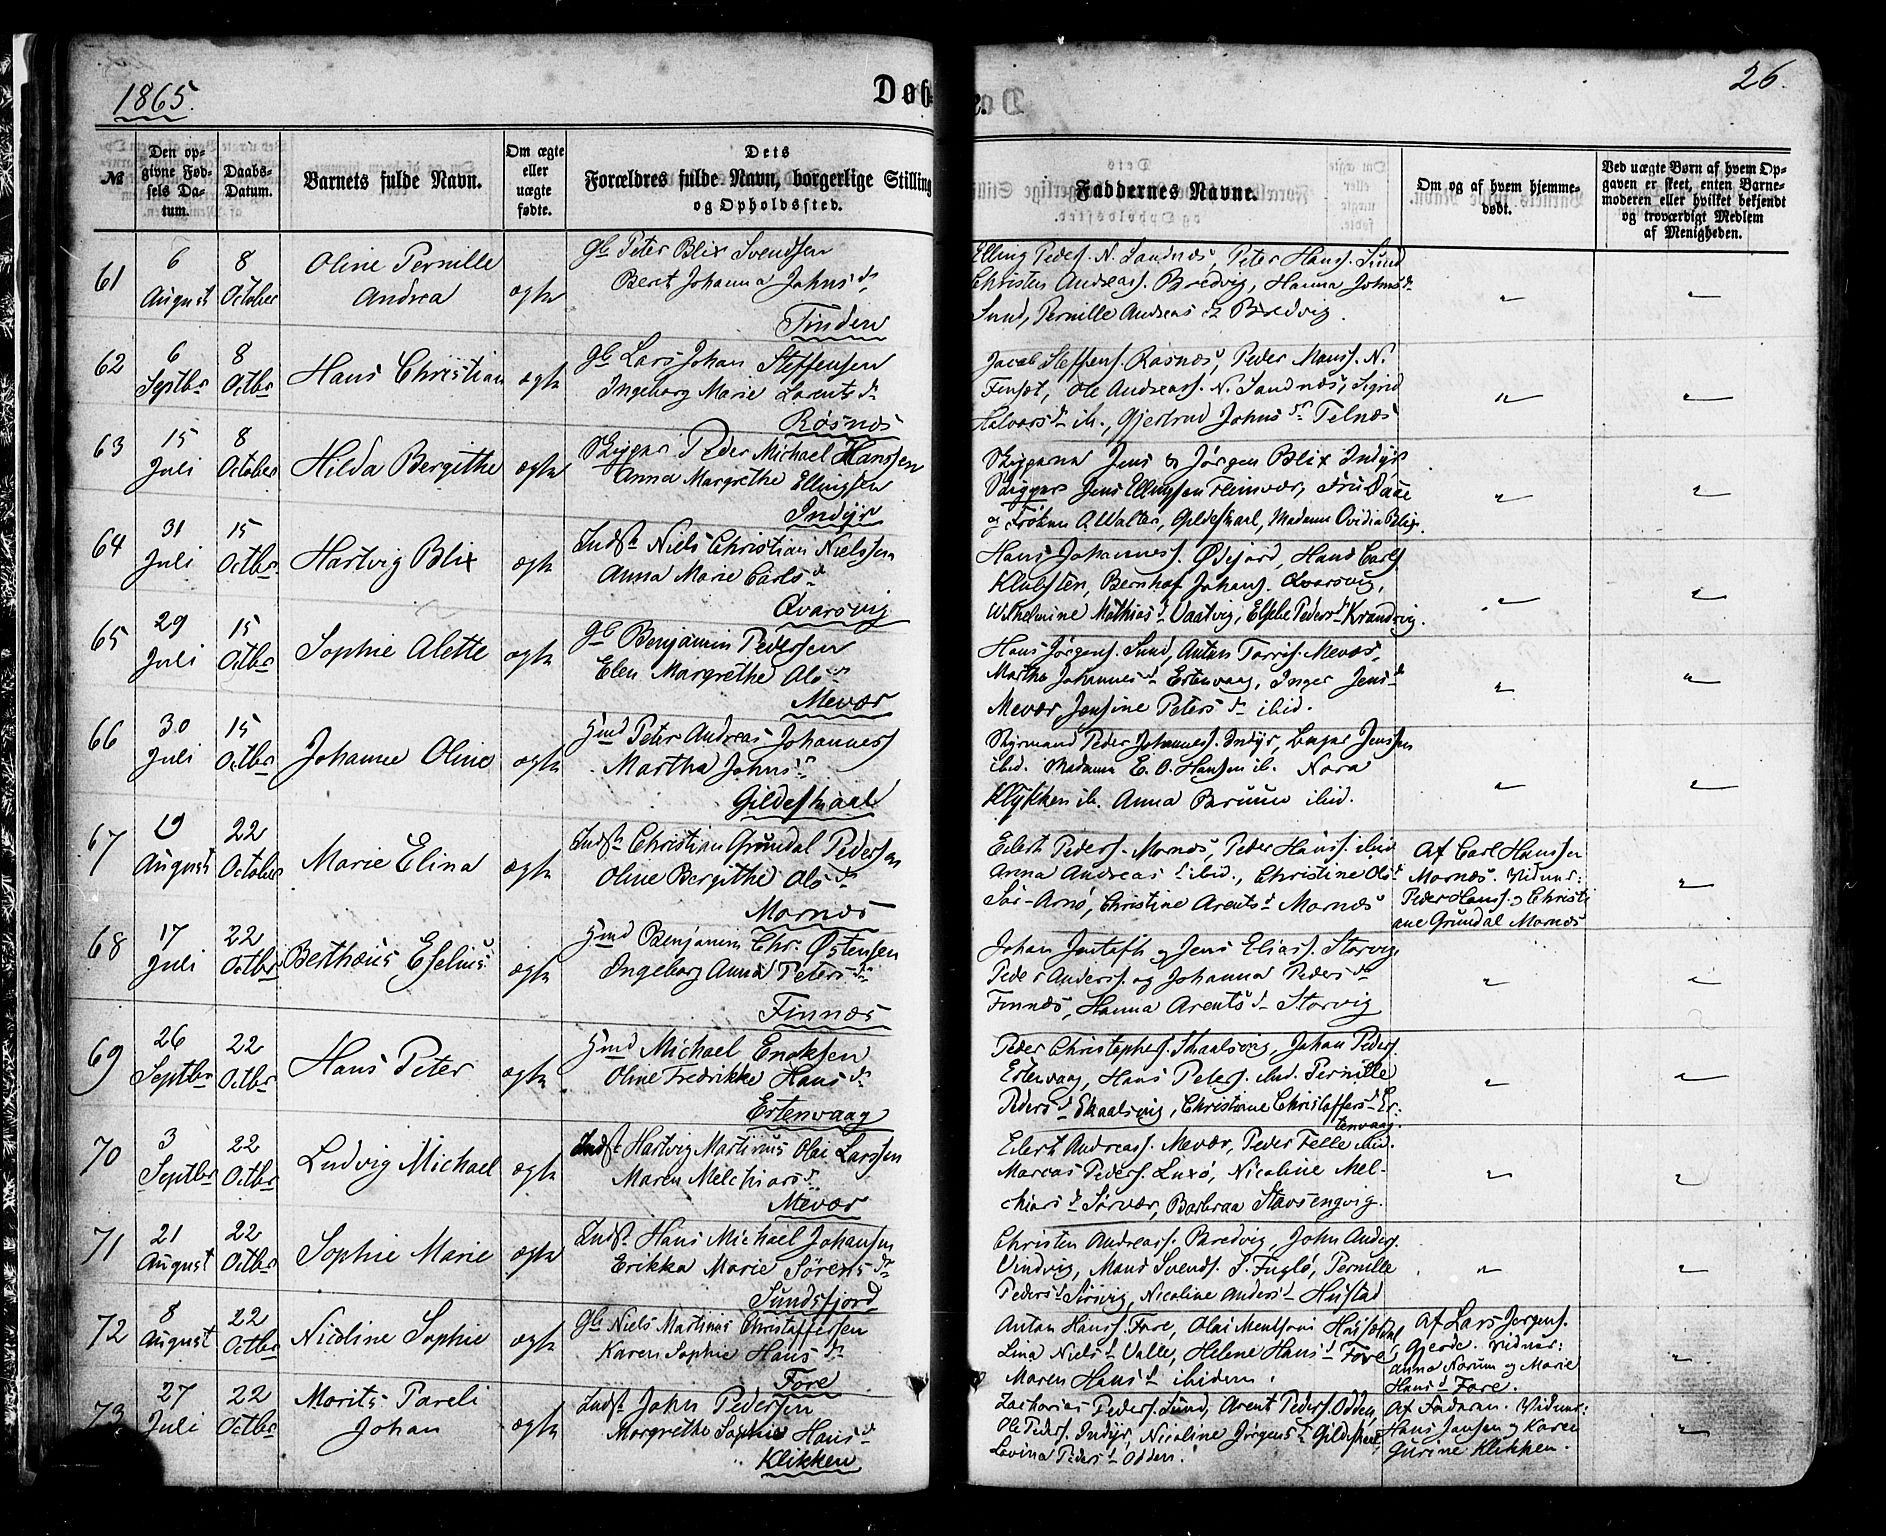 1865.
Døb
e.
26.
№
Den op-
givne Fød-
sels Da-
tum.
Daabs-
Datum.
Barnets fulde Navn.
Om ægte
eller
uægte
fødte.
Dets
Forældres fulde Navn, borgerlige Stilling
og Opholdssted.
Faddernes Navne.
Om og af hvem hjemme-
døbt.
Ved uægte Børn af hvem Op-
gaven er skeet, enten Barne-
moderen eller hvilket bekjendt
og troværdigt Medlem
af Menigheden.
61
6
August
8
October
Oline Pernille
Andrea
ægte
Gb Peter Blix Svendsen
Berit Johanna Johns d.
Tinden
Elling Peders. N. Sandnæs, Peter Hans. Sund
Christen Andreas. Bredvig, Hanna Johns d
Sund, Pernille Andreas d Bredvig.
62
6
Septbr
8
Octbr
Hans Christian
ægte
Gb Lars Johan Steffensen
Ingeborg Marie Lorents d.
Røsnæs
Jacob Steffens. Røsnæs, Peder Mons. N.
Finset, Ole Andreas. N. Sandnæs, Sigrid
Halvors d ib., Gjertrud Johns d Telnæs
63
15
Juli
8
October
Hilda Bergithe
ægte
Skipper Peder Michael Hanssen
Anna Margrethe Ellingsen
Indyr
Jens og Jørgen Blix Indyr
Skipper Jens Ellingsen Fleinvær, Fru Daae
og Frøken A. Walter, Gildeskaal, Madame Ovidia Blix.
64
31
Juli
15
Octbr
Hartvig Blix
ægte
Indst Niels Christian Nielssen
Anna Marie Carls d
Qvarsvig
Hans Johannes. Ødejord, Hans Carls
Bernhof Johans. Qvarsvig,
Wilhelmine Mathias d Vaatvig, Peders d
65
29
Juli
15
Octbr
Sophie Alette
ægte
Gb Benjamin Pedersen
Elen Margrethe Ols d
Mevær
Hans Jørgens. Sund, Anton Torris. Mevær,
Martha Johannes d Ertenvaag, Inger Jens d
Mevær, Jensine Peters d ibid.
66
30
Juli
15
Octbr
Johanne Oline
ægte
Gmd Peter Andreas Johannes
Martha Johns d
Gildeskaal
Peder Johannes. Indyr, Jenssen
ibid. Madame E. O. Hansen ib. Nora
Klykken ib. Anna Bruun ibid.
67
19
August
22
October
Marie Elina
ægte
Indst Christian Grundal Pedersen
Oline Bergithe Ols d
Mornæs
Eilert Peders. Mornæs, Peder Hans. ibid
Anna Andreas d ibid., Christine Ols d
Sør-Arnø, Christine Arents d Mornæs
Af Carl Hanssen
Mornæs. Vidner:
Peder Hans. og Christi
ane Grundal Mornæs
68
17
Juli
22
Octbr
Berthæus Eselius
ægte
Gmd Benjamin Chr. Østensen
Ingeborg Anna Peters d
Finnæs
Johan og Jens Elias. Storvig,
Peder Anders. og Johanna Peders d
Finnæs, Hanna Arents d Storvig
69
26
Septbr
22
Octbr
Hans Peter
ægte
Gmd Michael Enoksen
Oline Fredrikke Hans d
Ertenvaag
Peder Christophs. Skaalsvig, Johan Peders.
Ertenvaag, Hans Peters. ibid. Pernille
Peders d Skaalsvig, Christiane Christoffers d Er:
tenvaag.
70
3
Septbr
22
Octbr
Ludvig Michael
ægte
Indst Hartvig Martinus Olai Larssen
Maren Melchiors d
Mevær
Eilert Andreas. Mevær, Peder Felle ibid.
Marcus Peders. Luxø, Nicoline Mel-
chiors d Sørvær, Barbraa Stavsengvig.
71
21
August
22
Octbr
Sophie Marie
ægte
Indst Hans Michael Johansen
Erikka Marie Sørens d
Sundsfjord
Christen Andreas. Bredvig, John Anders.
Vindvig, Mons Svends. S. Fuglø, Pernille
Peders d Sørvig, Nicoline Anders d Hustad
72
8
August
22
Octbr
Nicoline Sophie
ægte
Gb Niels Martinus Christaffersen
Karen Sophie Hans d
Fore
Anton Hans. Fore, Olai
Lina Niels d Valle, Helene Hans d Fore,
Maren Hans d ibidem.
Af Lars Jørgens.
Gjerde. Vidner:
Anna Norum og Marie
Hans d Fore.
73
27
Juli
22
Octbr
Morits Pareli
Johan
ægte
Indst John Pedersen
Margrethe Sophie Hans d
Klikken
Zacharias Peders. Sund, Arent Peders. Odden,
Ole Peders. Indyr, Nicoline Jørgens d Gildeskaal,
Lovina Peders d Odden.
Af Faderen. Vidner:
Hans Jansen og Karen
Gurine Klikken.